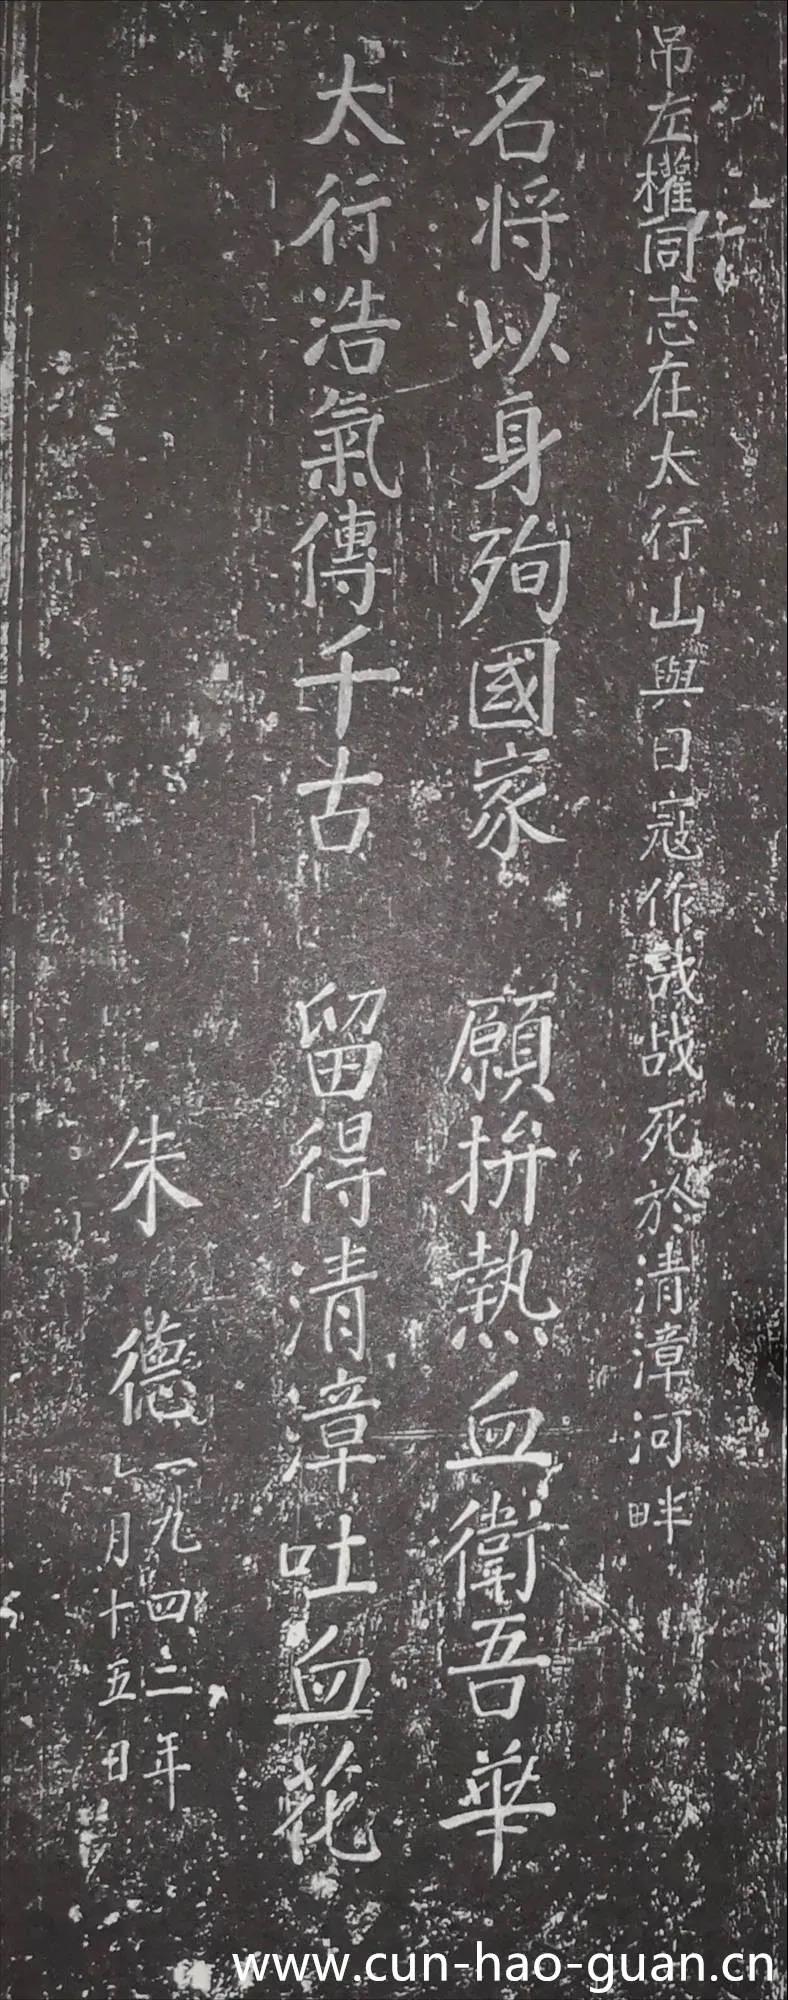 吊左權同志在太行山與日寇作戰战死於清漳河畔
名将以身殉國家 願拚熱血衛吾華
太行浩氣傳千古 留得清漳吐血花
朱德
一九四二年
月十五日
www.cun-hao-guan.cn